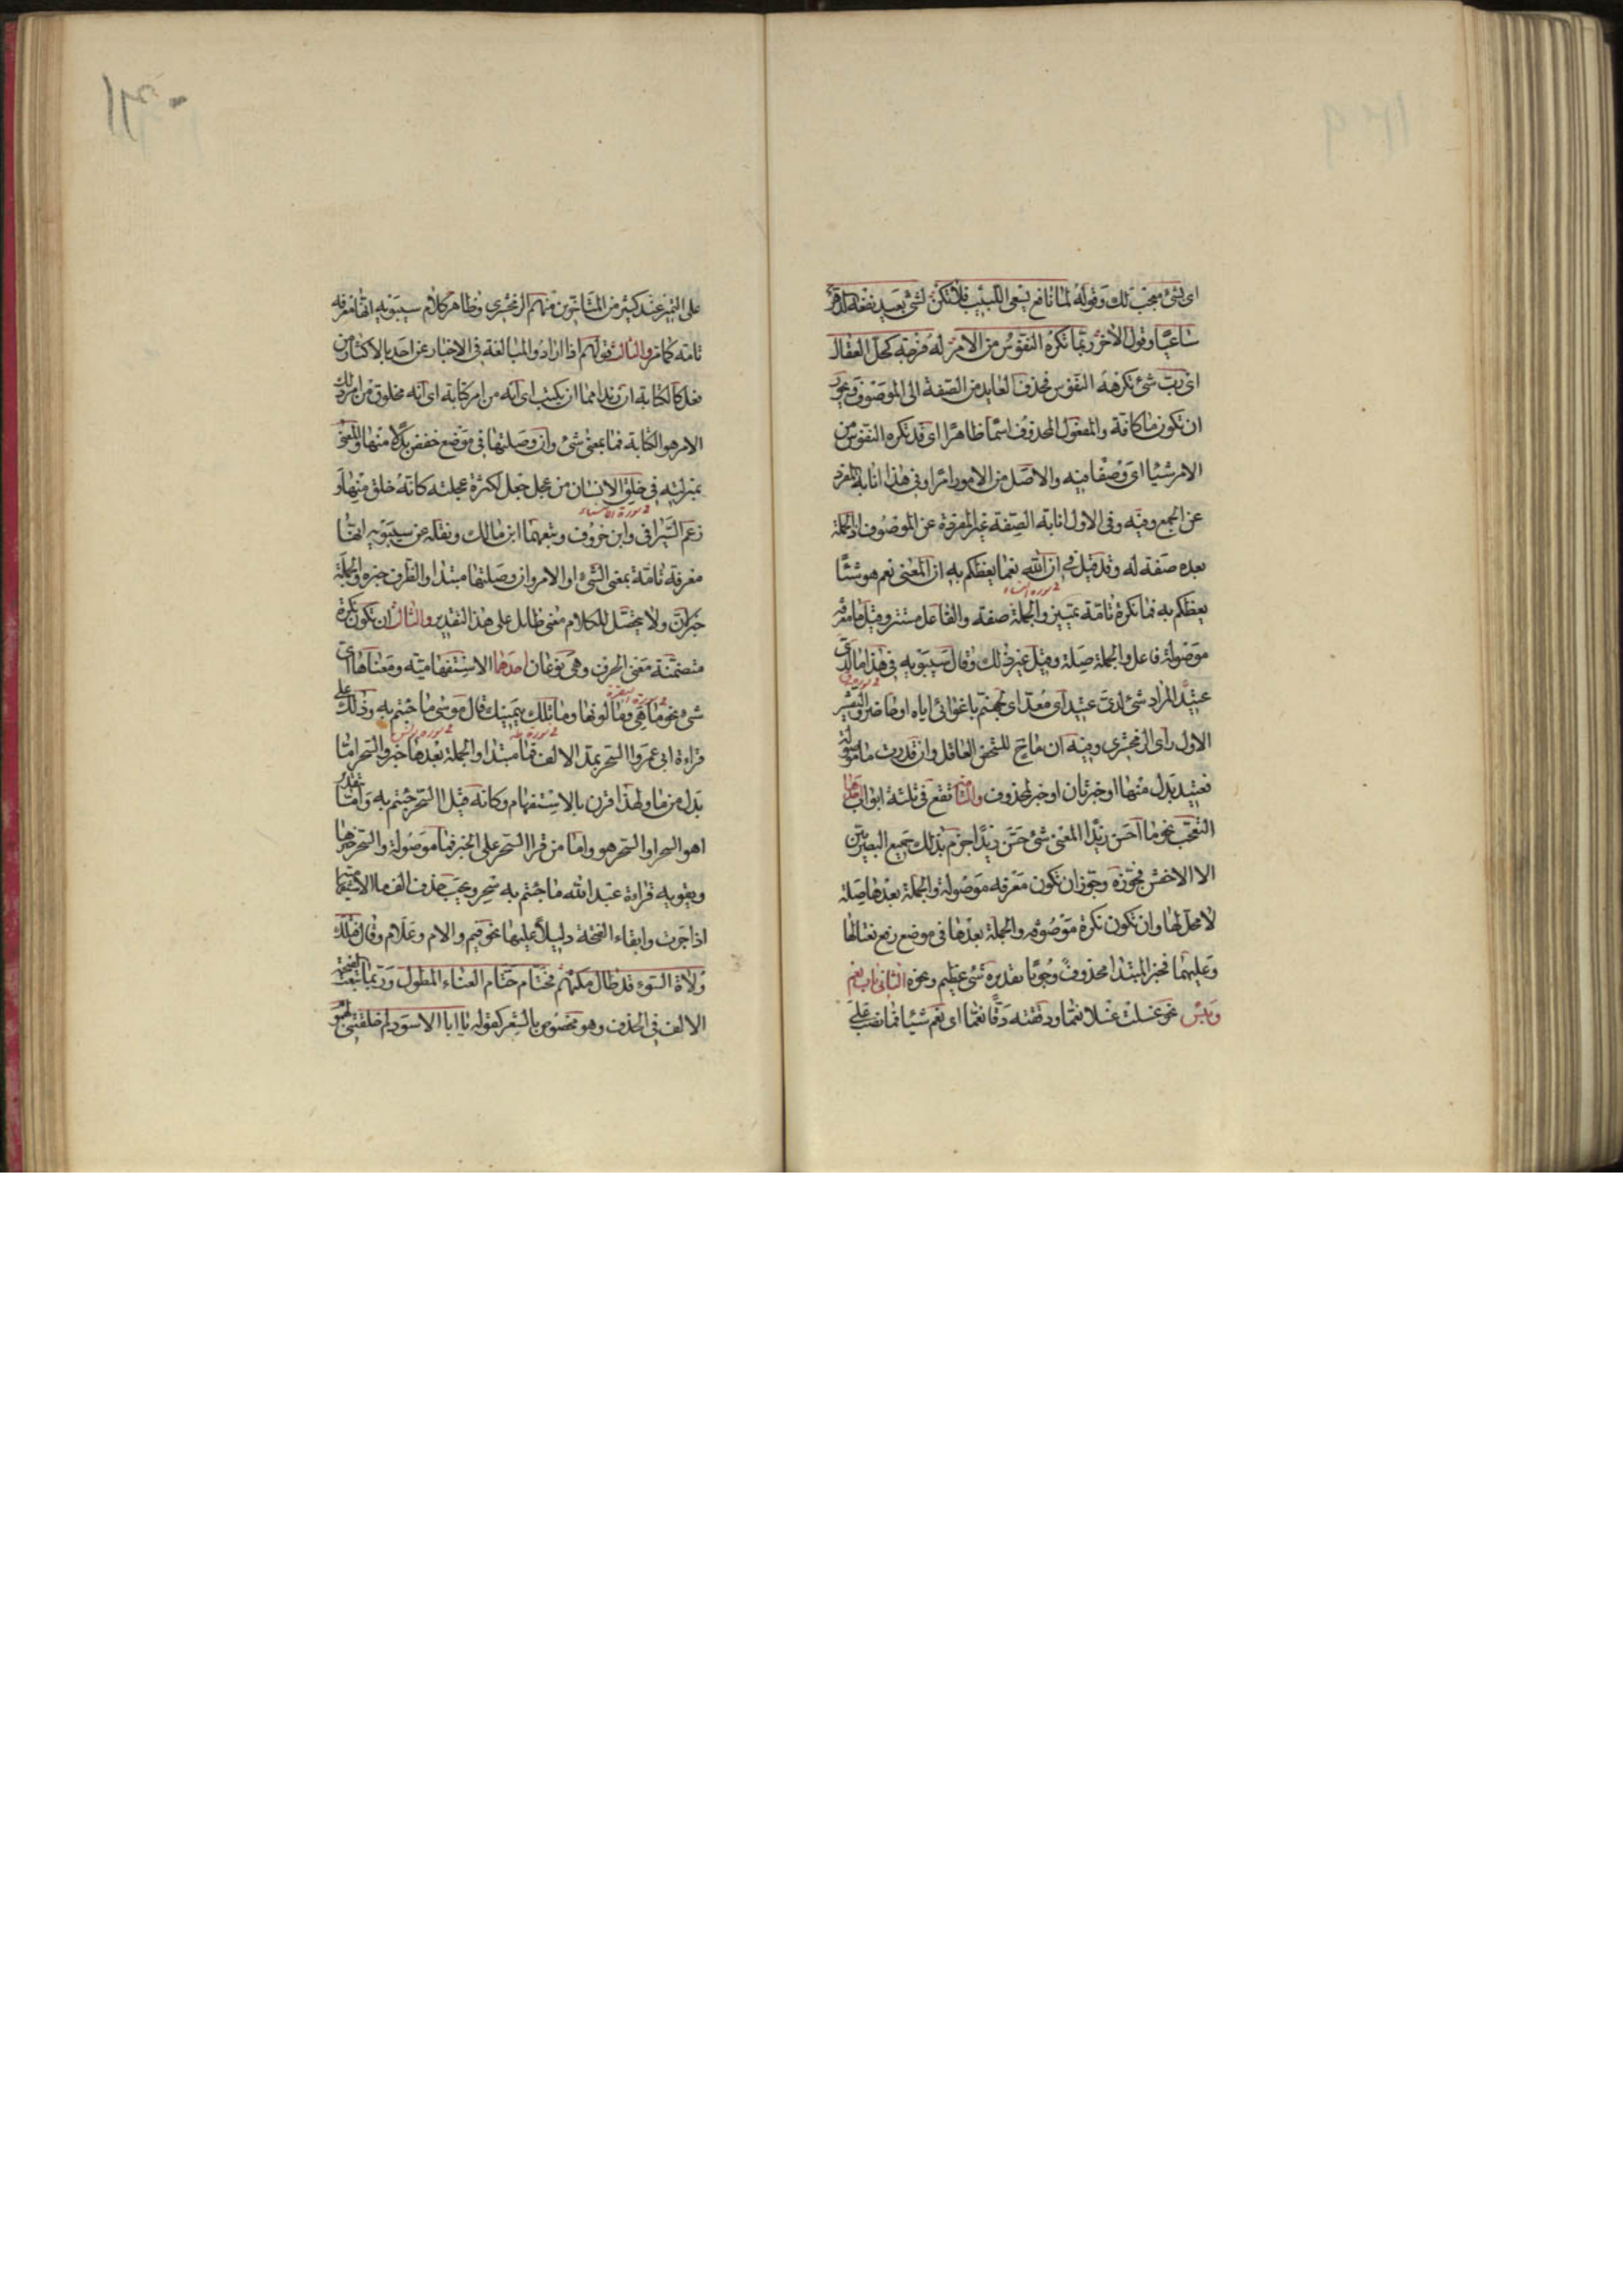 اى بشئ معجب لك وقوله لما نافع يسعى اللبيب فلا تكن لشئ بعيد نفعه الدهر
ساعيا وقول الاخر ربما تكره النفوس من الامر له فرجة كحل العقال
اى رب شئ تكرهه النفوس فحذف العايد من الصفة الى الموصوف ويجوز
ان تكون ما كافة والمفعول المحذوف اسما ظاهرا اى قد تكره النفوس من
الامر شيئا اى وصفا فيه والاصل من الامور امرا وفى هذا انابة المفرد
عن الجمع وفيه وفى الاول انابة الصفة غير المفردة عن الموصوف اذ الجملة
بعده صفة له وقد قيل فى ان الله نعما يعظكم به ان المعنى نعم هو شيئا
2 سورة النساء
يعظكم به فما نكرة تامة تمييز والجملة صفة والفاعل مستتر وقيل ما معرفة
موصولة فاعل والجملة صلة وقيل غير ذلك وقال سيبويه فى هذا ما لدى
عتيد المراد شئ لدى عتيد اى معد اى لجهنم باغوائى اياه او حاضر والتفسير
الاول راى الزمخشرى وفيه ان ما ح للشخص العاقل وان قدرت ما موصولة
فعتيد بدل منها او خبر ثان او خبر لمحذوف والتامة تقع فى ثلثة ابواب احدها
التعجب نحو ما احسن زيدا المعنى شئ حسن زيدا جزم بذلك جميع البصريين
الا الاخفش فجوزه وجوز ان تكون معرفة موصولة والجملة بعدها صلة
لا محل لها وان تكون نكرة موصوفة والجملة بعدها فى موضع رفع نعتا لها
وعليهما فخبر المبتدا محذوف وجوبا تقديره شئ عظيم ونحوه الثانى باب نعم
وبئس نحو غسلته غسلا نعما ودققته دقا نعما اى نعم شيئا فما نصب على
على التميز عند كثير من المتاخرين منهم الزمخشرى وظاهر كلام سيبويه انها معرفة
تامة كما مر والثالث قولهم اذا ارادوا المبالغة فى الاخبار عن احد بالاكثار من
فعل كالكتابة ان زيدا مما ان يكتب اى انه من امر كتابة اى انه مخلوق من امر وذلك
الامر هو الكتابة فما بمعنى شئ وان وصلتها فى موضع خفض بدلا منها والمعنى
بمنزلته فى خلق الانسان من عجل جعل لكثرة عجلته كانه خلق منها و
2 سورة الانبياء
زعم السيرافى وابن خروف وتبعهما ابن مالك ونقله عن سيبويه انها
معرفة تامة بمعنى الشئ او الامر وان وصلتها مبتدا والظرف خبره والجملة
خبر لان ولا يتحصل للكلام معنى طايل على هذا التقدير والثالث ان تكون نكرة
متضمنة معنى الحرف وهى نوعان احدهما الاستفهامية ومعناها اى
شئ نحو ما هى وما لونها وما تلك بيمينك قال موسى ما جئتم به وذلك على
2 سورة البقرة 2 سورة طه 2 سورة يونس
قراءة ابى عمرو السحر بمد الالف فما مبتدا والجملة بعدها خبر والسحر اما
بدل من ما ولهذا قرن بالاستفهام وكانه قيل السحر جئتم به واما بتقدير
اهو السحر او السحر هو واما من قرا السحر على الخبر فما موصولة والسحر خبرها
ويقويه قراءة عبد الله ما جئتم به سحر ويجب حذف الف ما الاستفهامية
اذا جرت وابقاء الفتحة دليلا عليها نحو فيم والام وعلام وقال فتلك
ولاة السوء قد طال مكثهم فحتام حتام العناء المطول وربما تبعت الفتحة
الالف فى الحذف وهو مخصوص بالشعر كقوله يا ابا الاسود لم خلفتنى لهموم